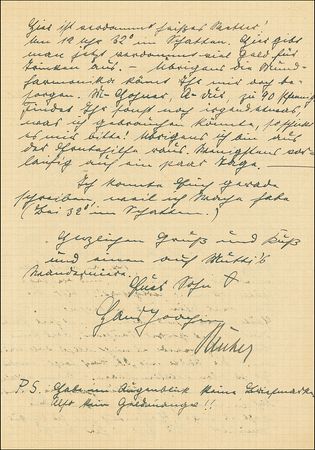 Hier ist verdammt heißes Wetter!
Um 12 Uhr 32° im Schatten. Hier gibt
man jetzt verdammt viel Geld für
Trinken aus. – Übrigens die Mund-
harmonika könnt Ihr mir doch be-
sorgen. M. Hohner, A-dur, zu 90 Pfennig
Findet Ihr sonst noch irgendetwas,
was ich gebrauchen könnte, so schickt
es mir bitte! Übrigens ich bin aus
der raus. Wenigstens vor-
läufig auf ein paar Tage.
Ich konnte Euch gerade
schreiben weil ich Wache habe
(Bei 32° im Schatten.)
Herzlichen Gruß und Kuß
und einen auf Mutti's
Euer Sohn
Hans Joachim
P.S. Habe im Augenblick keine Briefmarken
kein Geldmangel!!